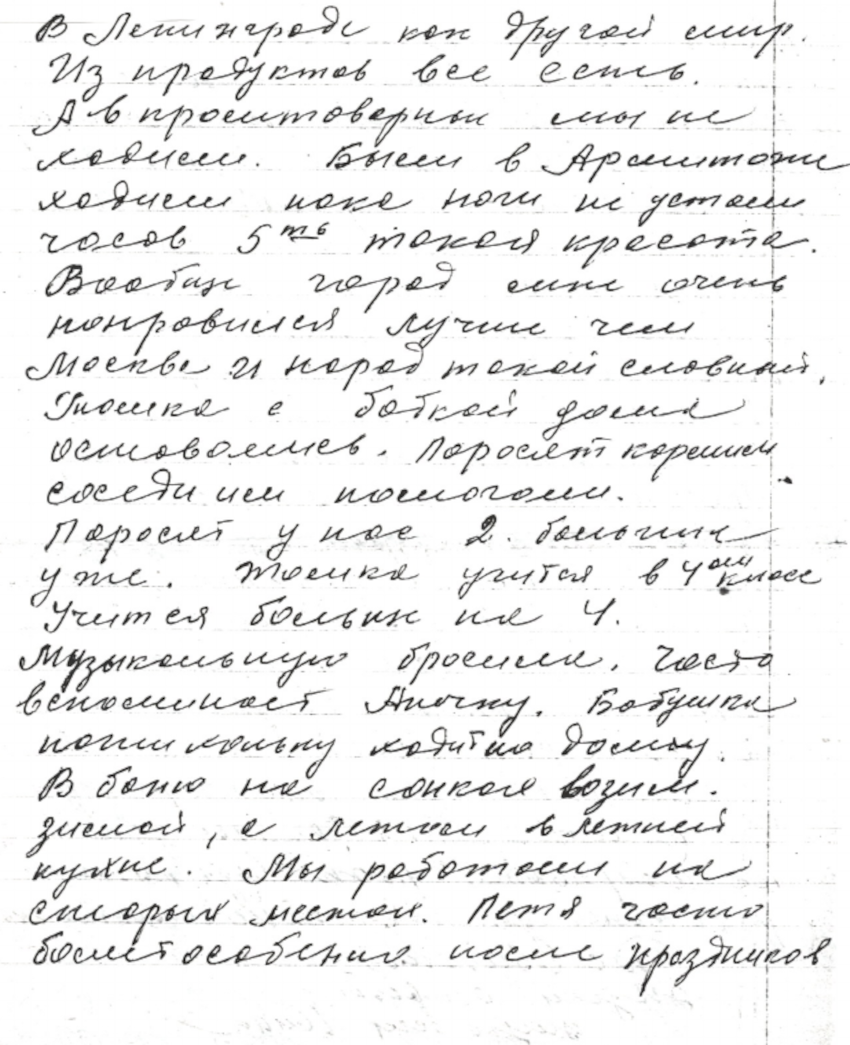 В Ленинграде как другой мир.
Из продуктов все есть.
А в промтоварные мы не
ходили. Были в Армитаже
ходили пока ноги не устали
часов 5ть такая красота.
Вообще город мне очень
понравился лучше чем
Москва и народ такой славный.
Томка с бабкой дома
оставались. Поросят кормили
соседи им помогали.
Поросят у нас 2. большие
уже. Томка учится в 4ом классе
Учится больше на 4.
Музыкальную бросила. Часто
вспоминает Аночку. Бабушка
потихоньку ходит по дому.
В баню на санках возим.
зимой, а летом в летней
кухне. Мы работаем на
старых местах. Петя часто
болеет особенно после праздников